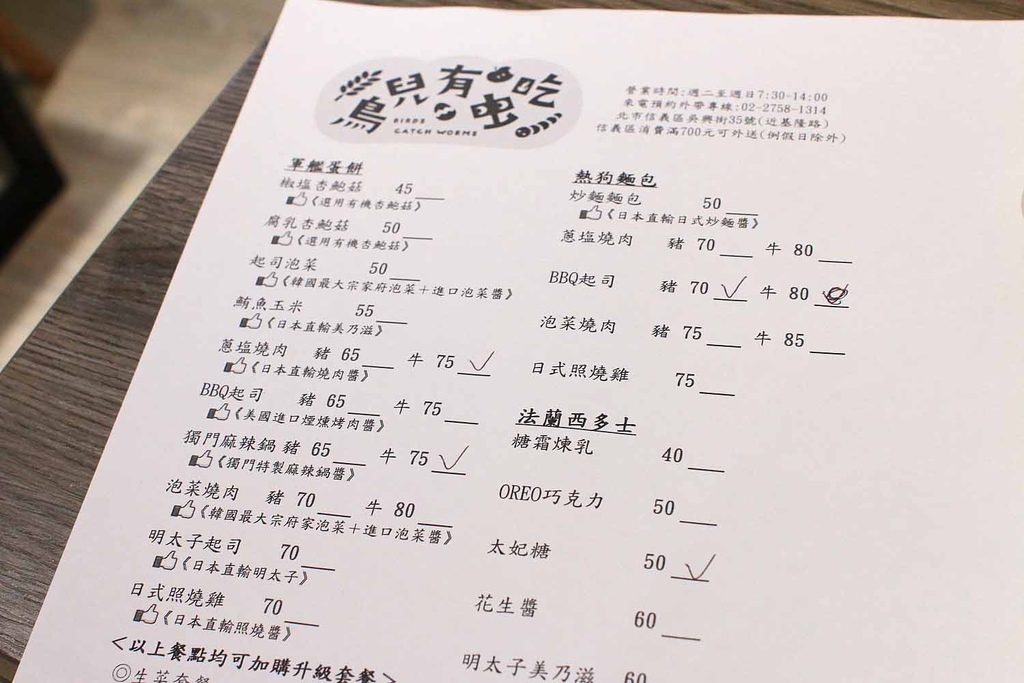 鳥兒有吃虫
BIRDS
CATCH WORMS
營業時間:週二至週日7:30-14:00
來電預約外帶專線:02-2758-1314
北市信義區吳興街35號(近基隆路)
信義區消費滿700元可外送(例假日除外)
軍艦蛋餅
椒塩杏鮑菇 45
《選用有機杏鮑菇》
腐乳杏鮑菇 50
《選用有機杏鮑菇》
起司泡菜 50
《韓國最大宗家府泡菜+進口泡菜醬》
鮪魚玉米 55
《日本直輸美乃滋》
蔥塩燒肉 豬 65 牛 75 ✓
《日本直輸燒肉醬》
BBQ起司 豬 65 牛 75
《美國進口煙燻烤肉醬》
獨門麻辣鍋 豬 65 牛 75 ✓
《獨門特製麻辣鍋醬》
泡菜燒肉 豬 70 牛 80
《韓國最大宗府家泡菜+進口泡菜醬》
明太子起司 70
《日本直輸明太子》
日式照燒雞 70
《日本直輸照燒醬》
<以上餐點均可加購升級套餐>
◎生菜套餐
熱狗麵包
炒麵麵包 50
《日本直輸日式炒麵醬》
蔥塩燒肉 豬 70 牛 80
BBQ起司 豬 70 ✓ 牛 80
泡菜燒肉 豬 75 牛 85
日式照燒雞 75
法蘭西多士
糖霜煉乳 40
OREO巧克力 50
太妃糖 50 ✓
花生醬 60
明太子美乃滋 60